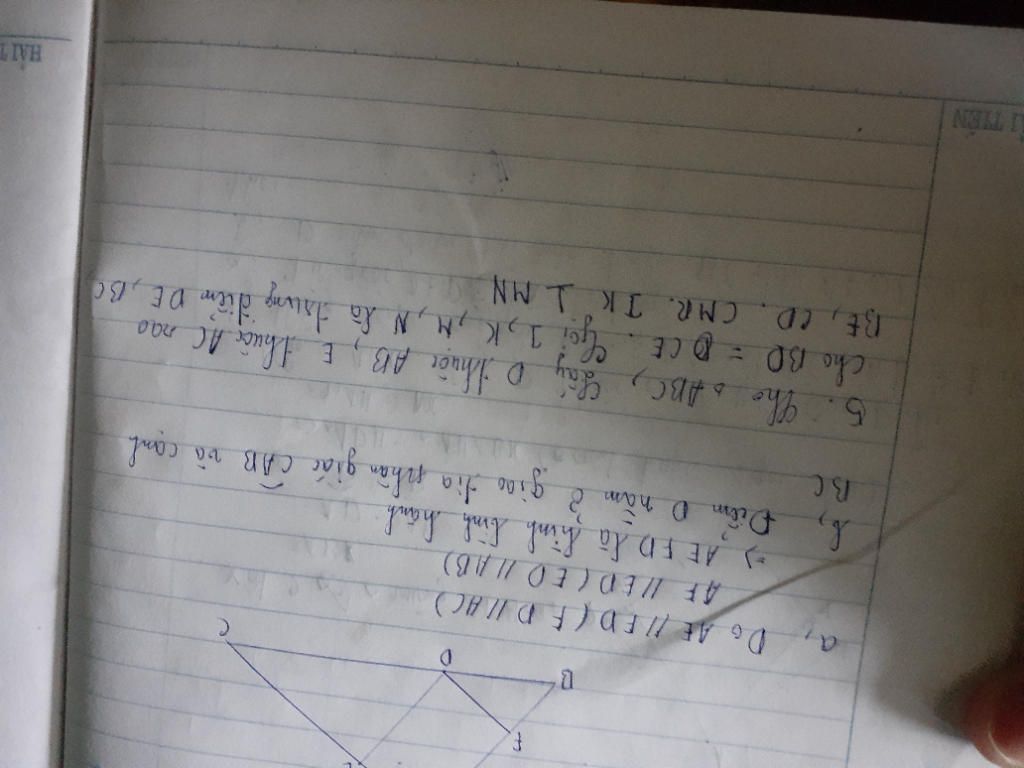 C
D
B
F
E
a, Do AE // FD (FD // AC)
AF // ED (ED // AB)
=> AEFD là hình bình hành
b, Điểm D nằm ở giao tia phân giác CAB và cạnh
BC
5. Cho △ABC, lấy D thuộc AB, E thuộc AC sao
cho BD = CE. Gọi I, K, M, N là trung điểm DE, BC
BE, CD. CMR. IK ⊥ MN
HẢI T
ẢI TIẾN